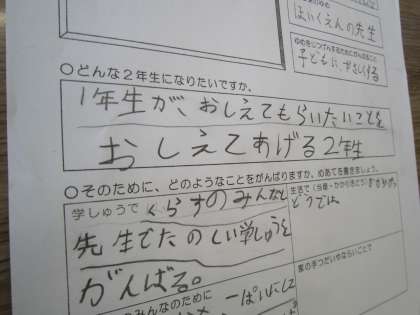 ほいくえんの先生
子どもに、やさしくする
○どんな2年生になりたいですか。
1年生が、おしえてもらいたいことを
おしえてあげる2年生
○そのために、どのようなことをがんばりますか。めあてを書きましょう。
学しゅうで くらすのみんなと
先生でたのしい学しゅうを
がんばる。
生活で(当番・かかり活どう)
どうでは
家の手つだいやならいごとで
みんなのために